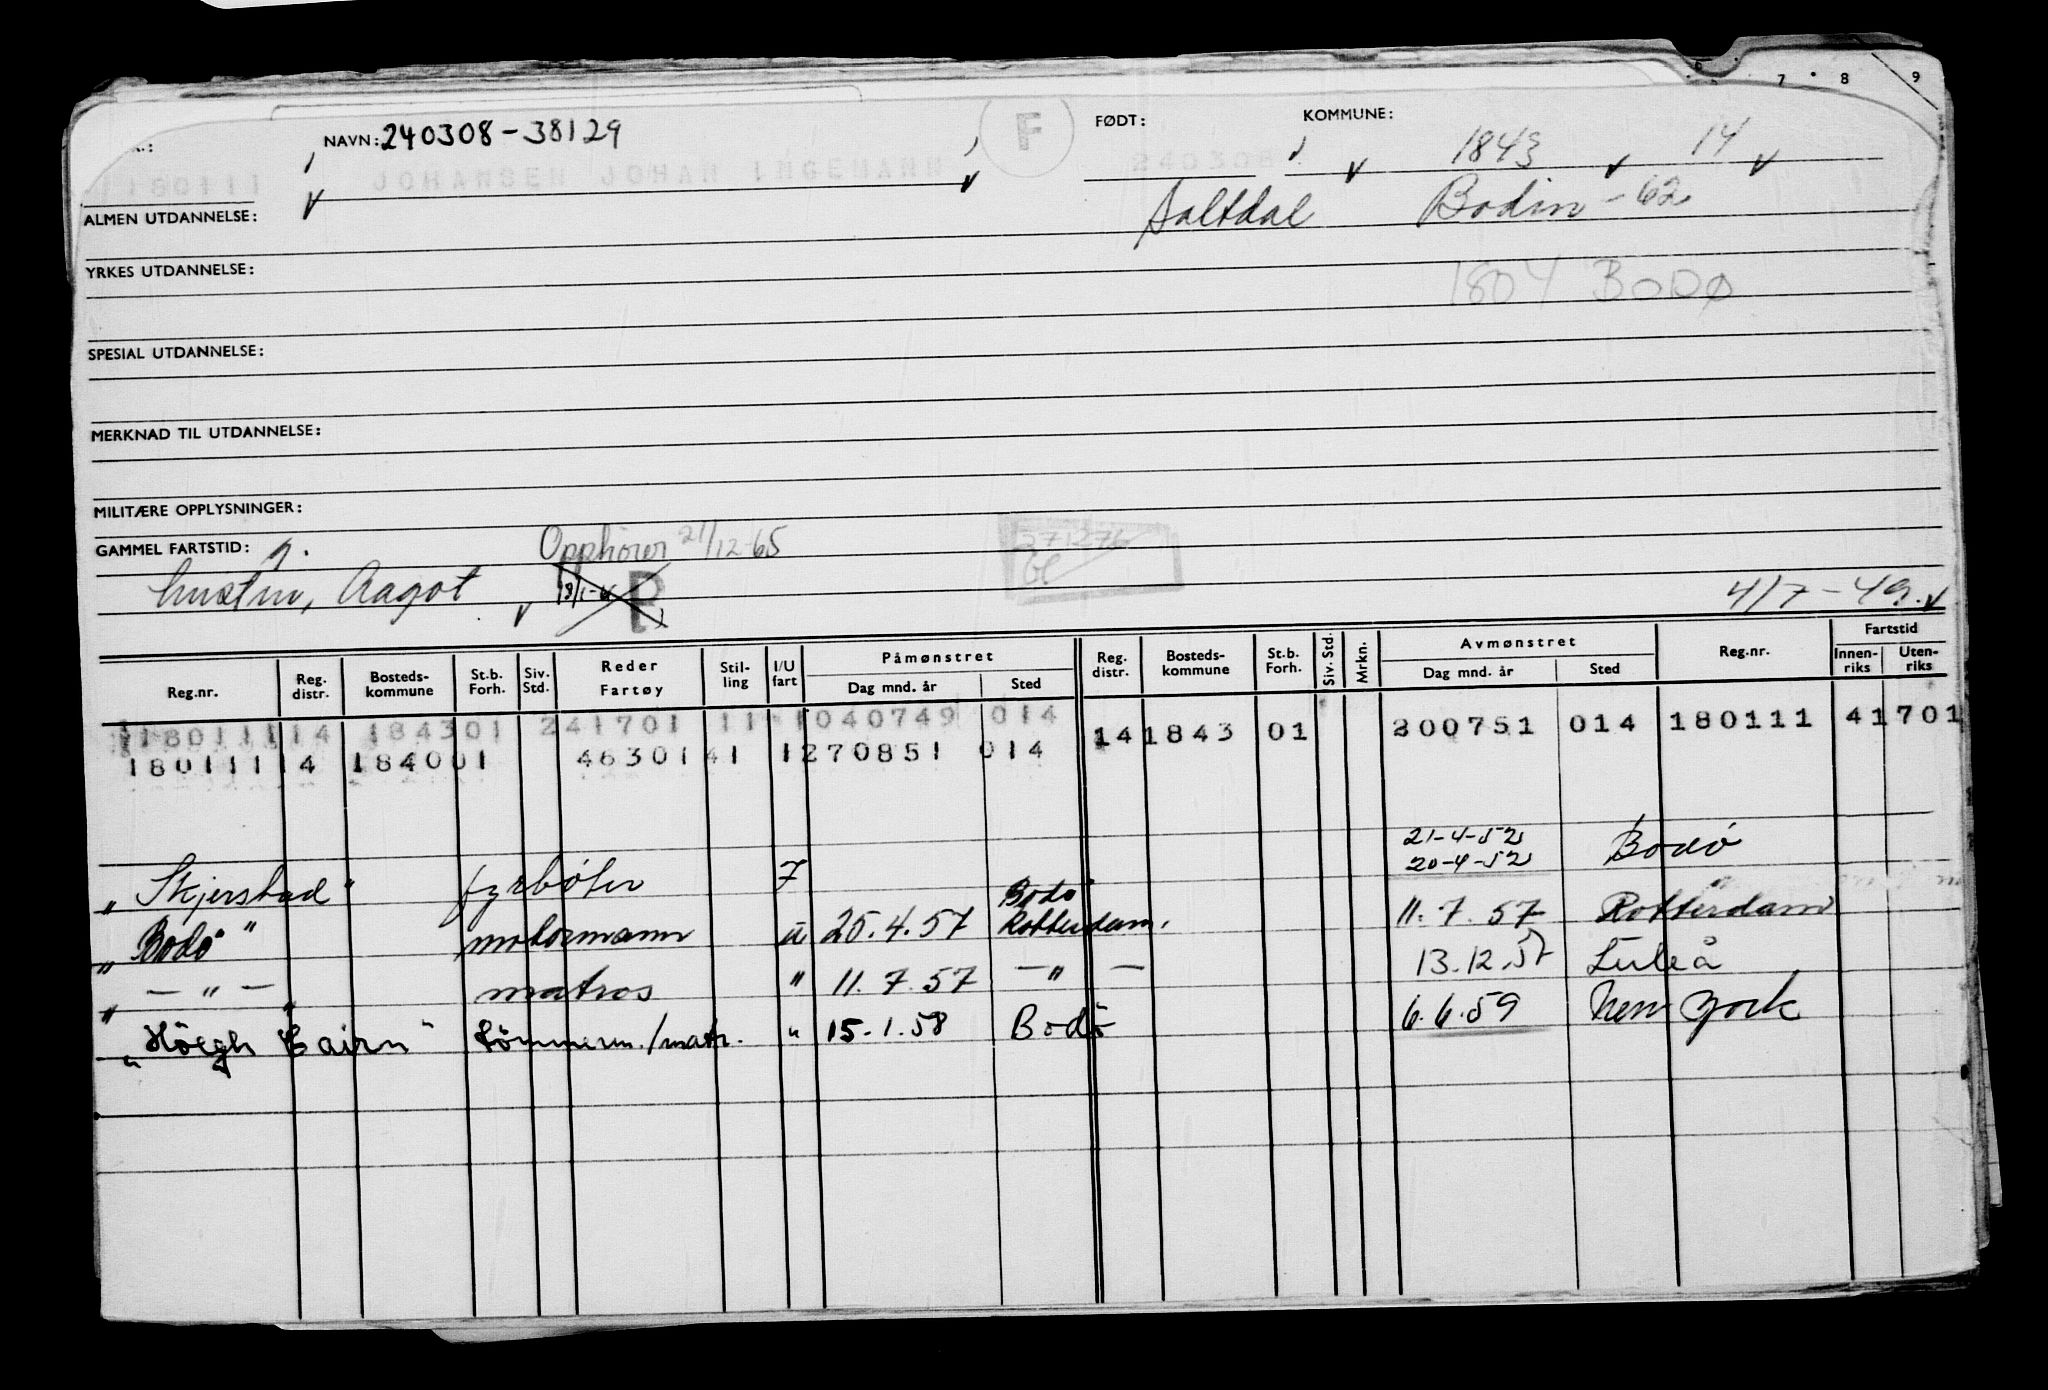 7 8 9
NAVN: 240308-38129 F FØDT: KOMMUNE:
180111 JOHANSEN JOHAN INGEMANN 240308 1843 14
ALMEN UTDANNELSE: Saltdal Bodin -62
YRKES UTDANNELSE: 1804 BODØ
SPESIAL UTDANNELSE:
MERKNAD TIL UTDANNELSE:
MILITÆRE OPPLYSNINGER:
GAMMEL FARTSTID: g. Opphører 21/12-65 271276
hustru, Aagot P 4/7-49.
Reg.nr. Reg. distr. Bosteds-kommune St.b. Forh. Siv. Std. Reder Fartøy Stil-ling I/U fart Påmønstret Dag mnd. år Sted Reg. distr. Bosteds-kommune St.b. Forh. Siv. Std. Mrkn. Avmønstret Dag mnd. år Sted Reg.nr. Fartstid Innen-riks Uten-riks
180111 14 1843 01 241701 11 1 040749 014 14 1843 01 200751 014 180111 41 701
180111 14 1840 01 46301 41 1 270851 014
21-4-52
" Skjerstad " fyrbøter 7 20-4-52 Bodø
" Bodø " motormann u 25.4.57 Bodø Rotterdam. 11.7.57 Rotterdam
" — " — matros " 11.7.57 — " — 13.12.57 Luleå
" Höegh Cairn " tömmerm./matr. " 15.1.58 Bodö 6.6.59 New York